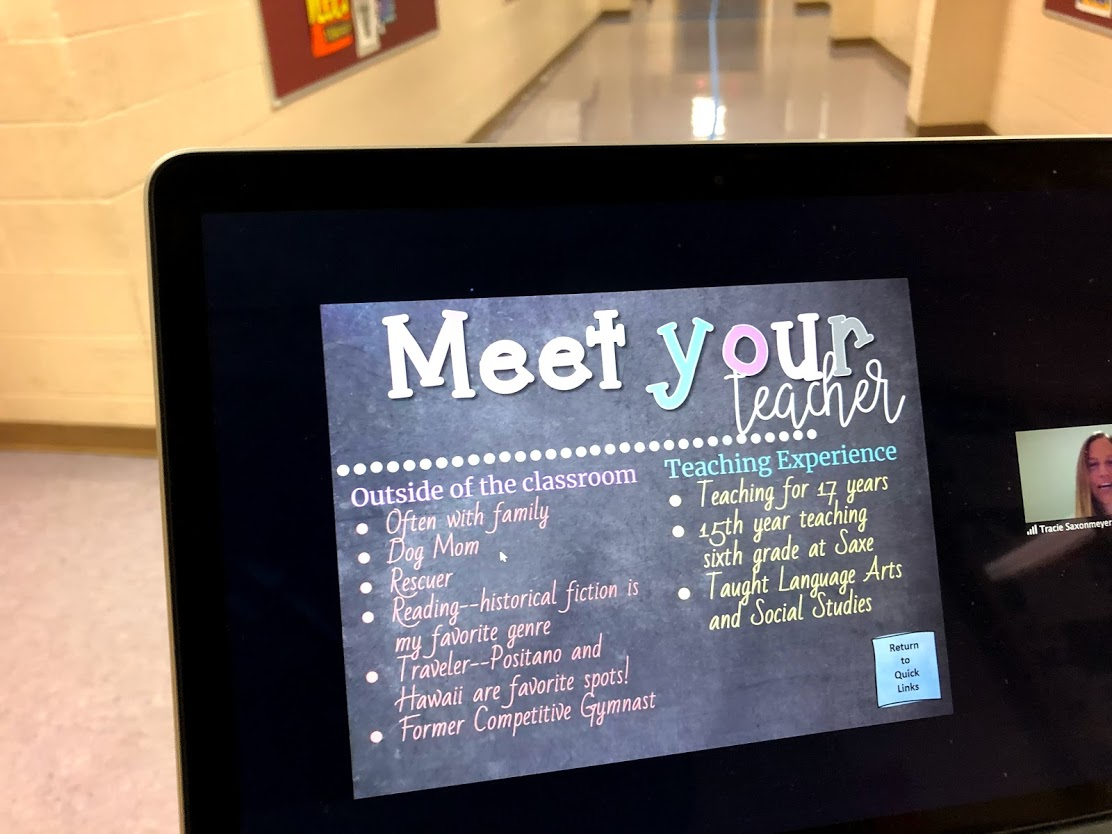 Meet your
teacher
Outside of the classroom
Often with family
Dog Mom
Rescuer
Reading--historical fiction is
my favorite genre
Traveler--Positano and
Hawaii are favorite spots!
Former Competitive Gymnast
Teaching Experience
Teaching for 17 years
15th year teaching
sixth grade at Saxe
Taught Language Arts
and Social Studies
Return
to
Quick
Links
Tracie Saxonmeyer